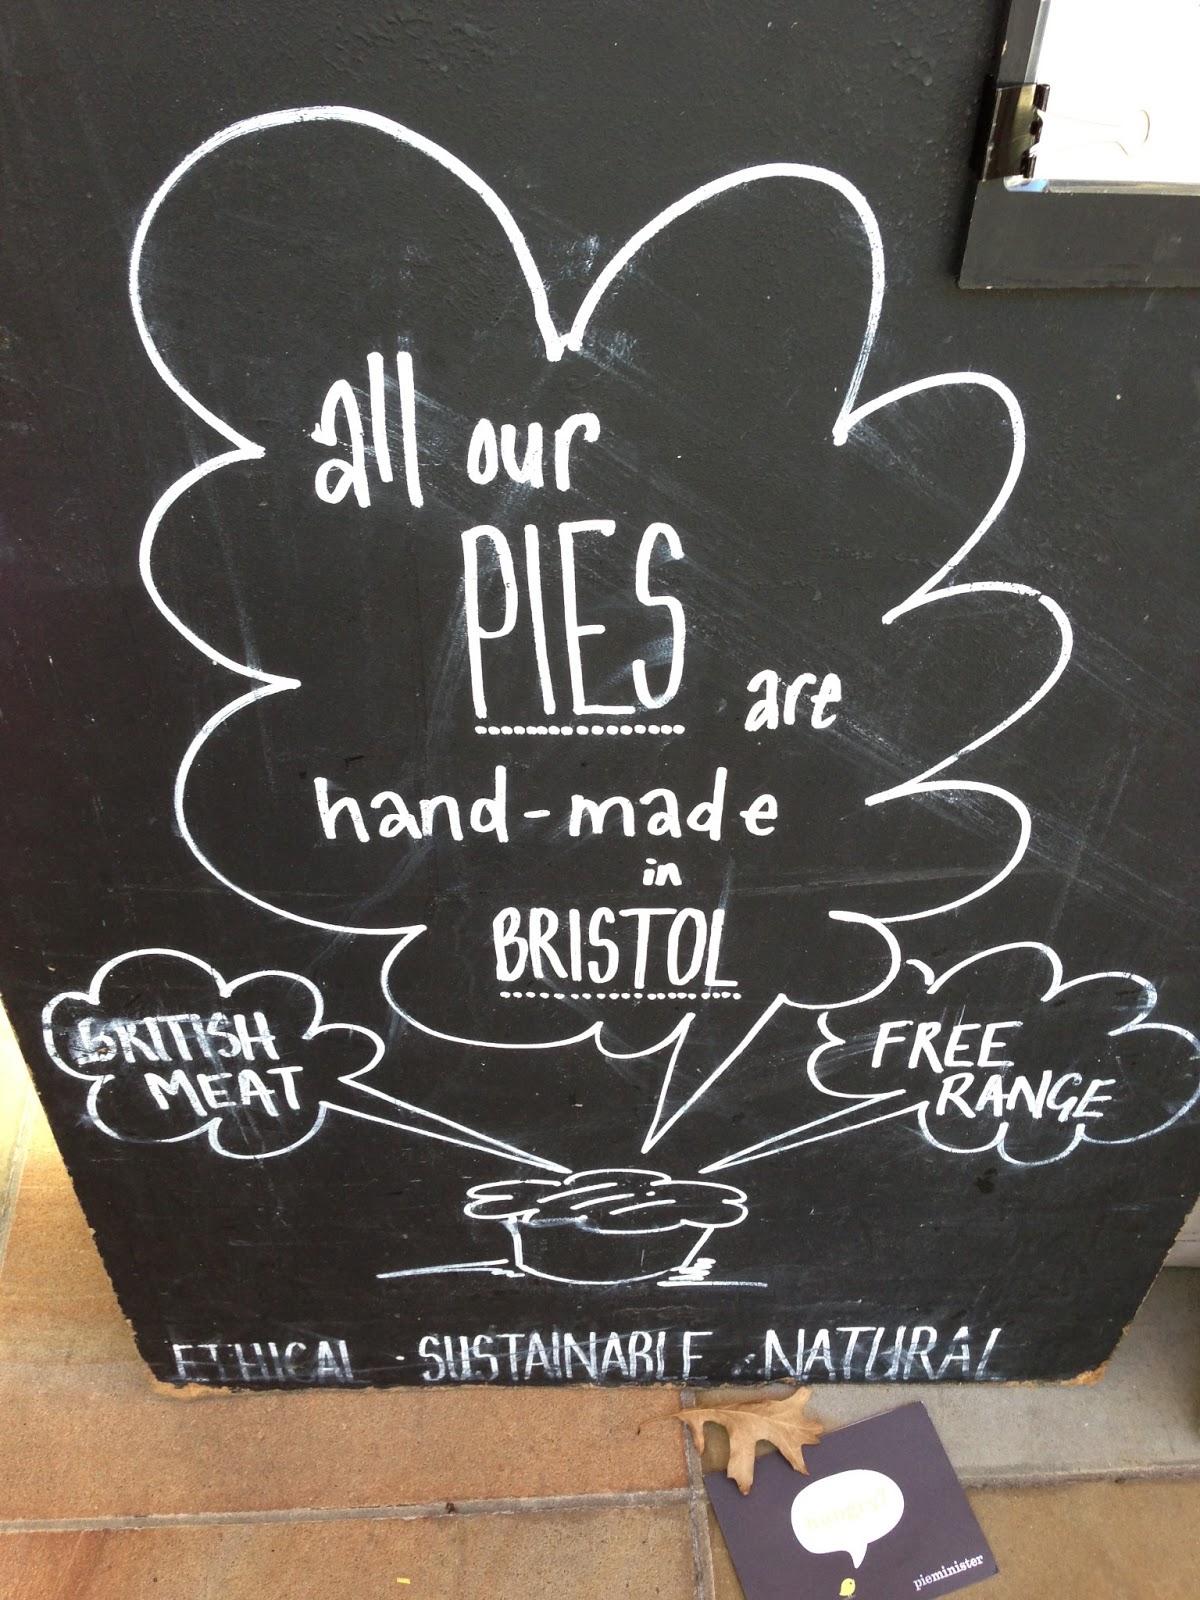 all our
PIES are
hand-made
in
BRISTOL
BRITISH
MEAT
FREE
RANGE
ETHICAL · SUSTAINABLE · NATURAL
hungry?
pieminister